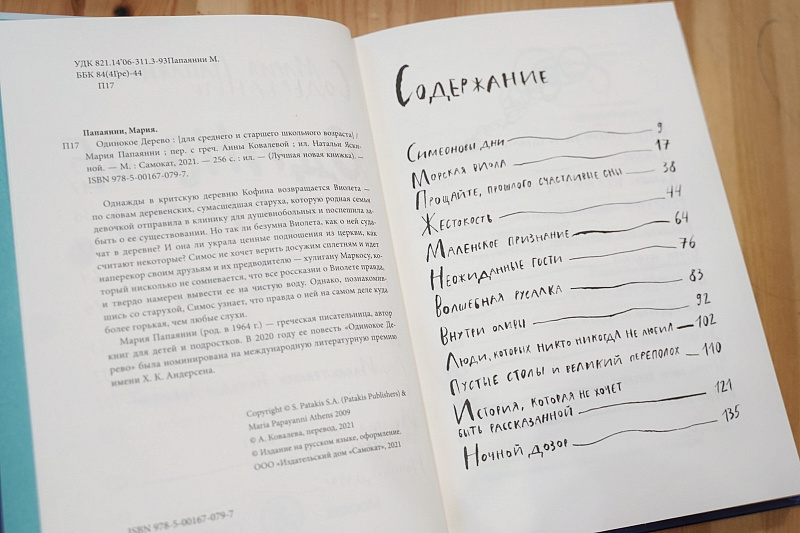 УДК 821.14'06-311.3-93Папаянни М.
ББК 84(4Гре)-44
П17
Папаянни, Мария.
П17 Одинокое Дерево : [для среднего и старшего школьного возраста] /
Мария Папаянни ; пер. с греч. Анны Ковалевой ; ил. Натальи Яскиной.
ной. — М. : Самокат, 2021. — 256 с. : ил. — (Лучшая новая книжка). —
ISBN 978-5-00167-079-7.
Однажды в критскую деревню Кофина возвращается Виолета —
по словам деревенских, сумасшедшая старуха, которую родная семья
девочкой отправила в клинику для душевнобольных и поспешила за-
быть о ее существовании. Но так ли безумна Виолета, как о ней суда-
чат в деревне? И она ли украла ценные подношения из церкви, как
считают некоторые? Симос не хочет верить досужим сплетням и идет
наперекор своим друзьям и их предводителю — хулигану Маркосу, ко-
торый нисколько не сомневается, что все россказни о Виолете правда,
и твердо намерен вывести ее на чистую воду. Однако, познакомив-
шись со старухой, Симос узнает, что правда о ней на самом деле куда
более горькая, чем любые слухи.
Мария Папаянни (род. в 1964 г.) — греческая писательница, автор
книг для детей и подростков. В 2020 году ее повесть «Одинокое Де-
рево» была номинирована на международную литературную премию
имени Х. К. Андерсена.
Copyright © S. Patakis S.A. (Patakis Publishers) &
Maria Papayanni Athens 2009
© А. Ковалева, перевод, 2021
© Издание на русском языке, оформление.
ООО «Издательский дом «Самокат», 2021
ISBN 978-5-00167-079-7
Содержание
Симеоновы дни 9
Морская виола 17
Прощайте, прошлого счастливые сны 38
Жестокость 44
Маленькое признание 64
Неожиданные гости 76
Волшебная русалка 83
Внутри оливы 92
Люди, которых никто никогда не любил 102
Пустые столы и великий переполох 110
История, которая не хочет
быть рассказанной 121
Ночной дозор 135